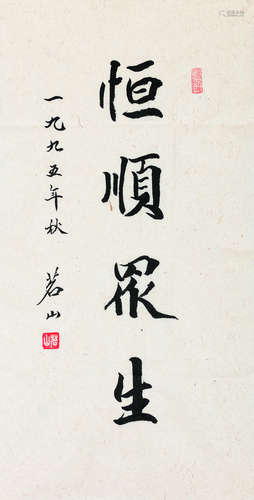 恒順眾生
一九九五年秋
茗山